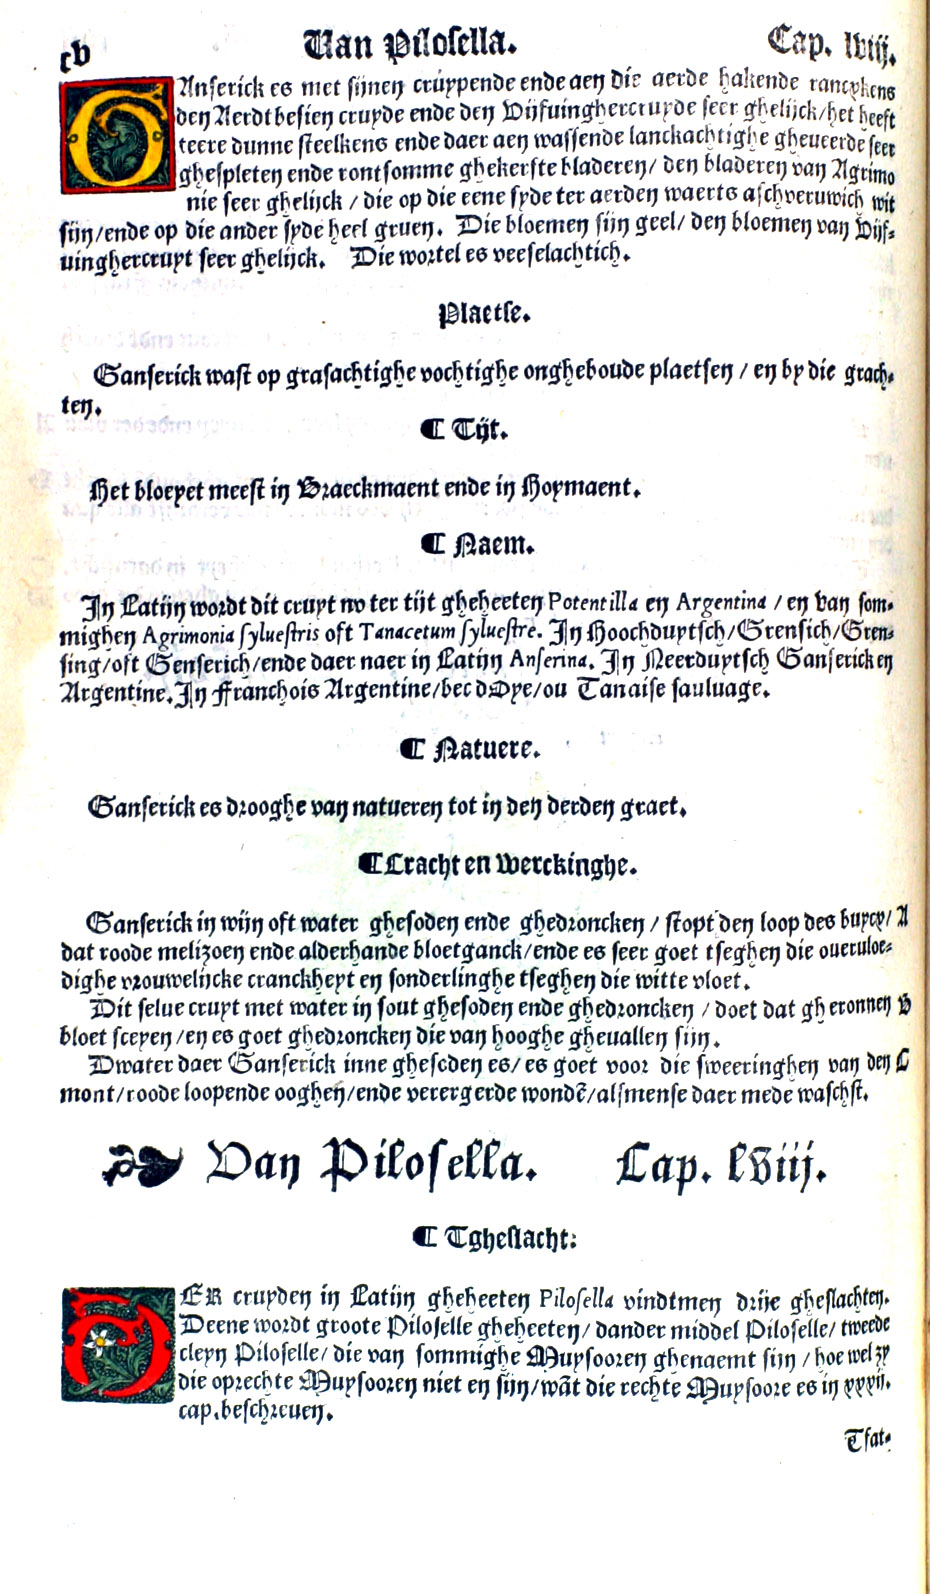 cv Van Pilosella. Cap. lviij.
GAnserick es met sijnen crúyppende ende aen die aerde hakende rancykens
den Aerdtbesien cruyde ende den Vijfuinghercruyde seer ghelijck/het heeft
teere dunne steelkens ende daer aen wassende lanckachtighe gheueerde seer
ghespleten ende rontsomme ghekerfte bladeren/ den bladeren van Agrimo
nie seer ghelijck / die op die eene syde ter aerden waerts aschveruwich wit
sijn/ende op die ander syde heel gruen. Die bloemen sijn geel/ den bloemen van Vijf-
uinghercruyt seer ghelijck. Die wortel es veeselachtich.
Plaetse.
Ganserick wast op grasachtighe vochtighe ongheboude plaetsen / en by die grach-
ten.
¶ Tijt.
Het bloeyet meest in Braeckmaent ende in Hoymaent.
¶ Naem.
In Latijn wordt dit cruyt nv ter tijt gheheeten Potentilla en Argentina / en van som-
mighen Agrimonia syluestris oft Tanacetum syluestre. In Hoochduytsch/Grensich/Gren-
sing/oft Genserich/ende daer naer in Latijn Anserina. In Neerduytsch Ganserick en
Argentine. In Franchois Argentine/bec dOye/ou Tanaise sauluage.
¶ Natuere.
Ganserick es drooghe van natueren tot in den derden graet.
¶ Cracht en werckinghe.
Ganserick in wijn oft water ghesoden ende ghedroncken / stopt den loop des buycx/ A
dat roode melizoen ende alderhande bloetganck/ende es seer goet tseghen die oueruloe-
dighe vrouwelijcke cranckheyt en sonderlinghe tseghen die witte vloet.
Dit selue cruyt met water in sout ghesoden ende ghedroncken / doet dat gheronnen B
bloet sceyen/en es goet ghedroncken die van hooghe gheuallen sijn.
Dwater daer Ganserick inne ghesoden es/ es goet voor die sweeringhen van den C
mont/roode loopende ooghen/ende verergerde wondẽ/alsmense daer mede waschst.
Van Pilosella. Cap. lviij.
¶ Tgheslacht:
DER cruyden in Latijn gheheeten Pilosella vindtmen drije gheslachten.
Deene wordt groote Piloselle gheheeten/ dander middel Piloselle/ tweede
cleyn Piloselle/ die van sommighe Muysooren ghenaemt sijn / hoe wel zy
die oprechte Muysooren niet en sijn/wãt die rechte Muysoore es in xxxij.
cap. beschreuen.
Tsat-